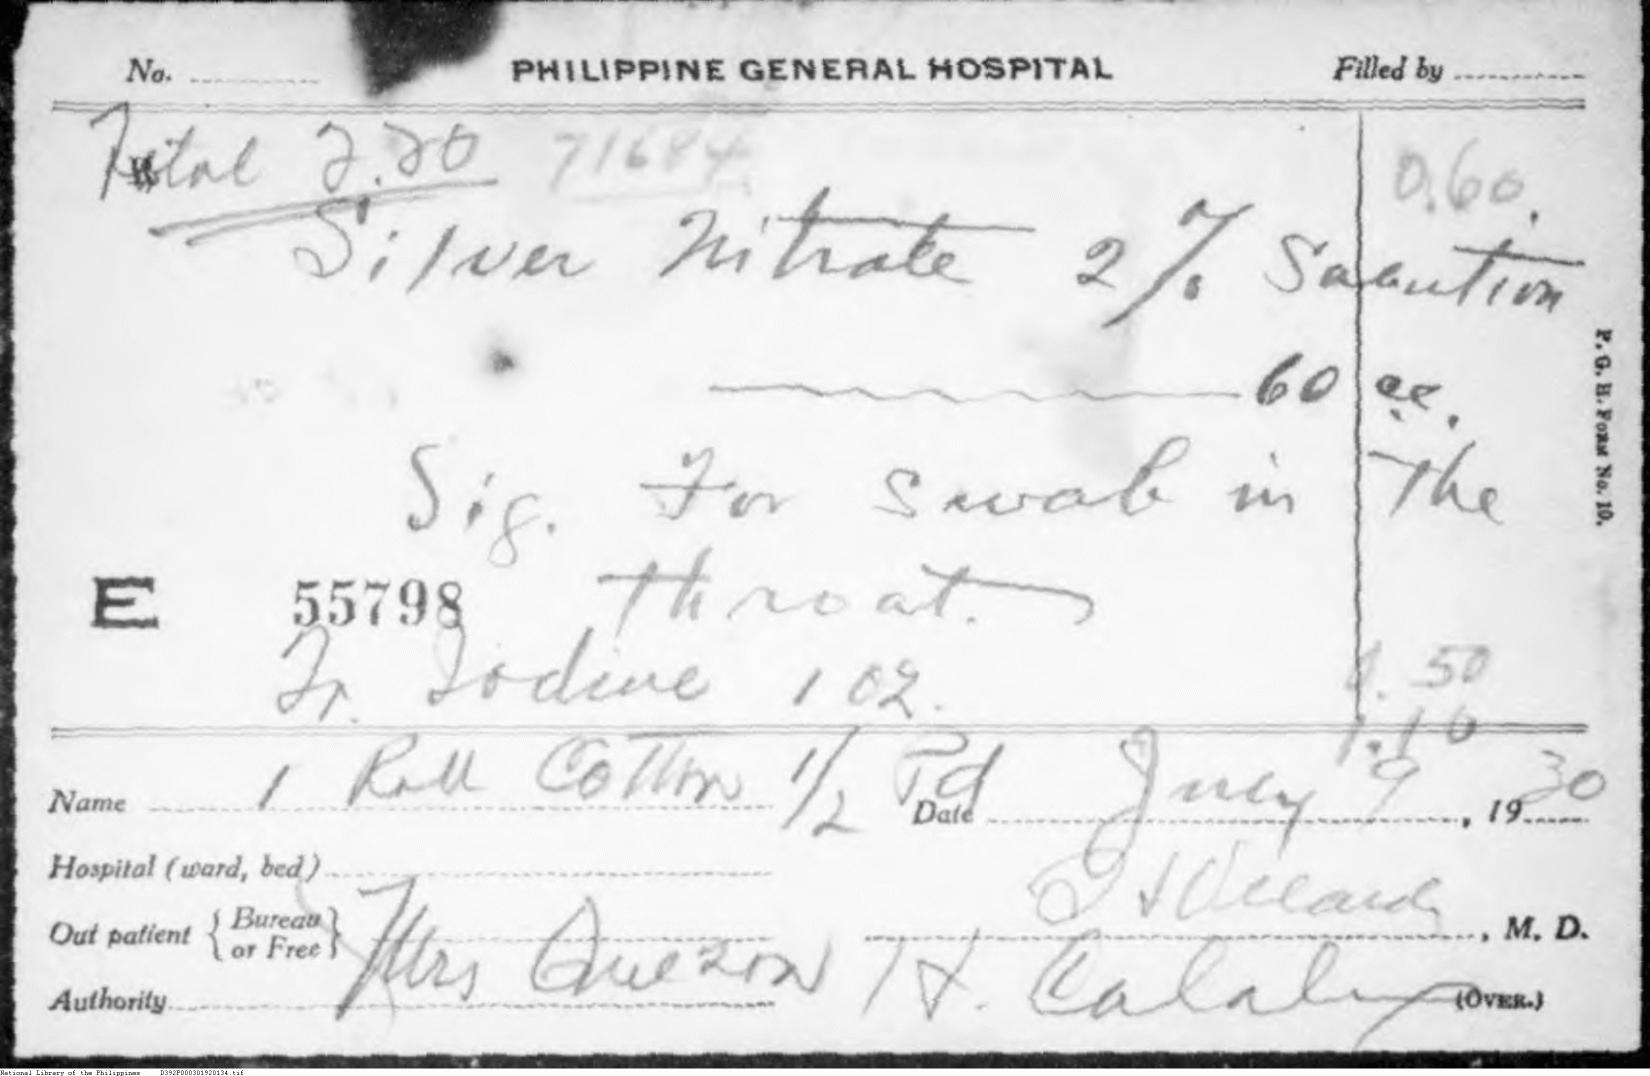 No. PHILIPPINE GENERAL HOSPITAL Filled by
Total 2.20 71684 0.60.
Silver Nitrate 2% Solution
60 cc.
Sig. For swab in the
E 55798 throat.
Tr. Iodine 1 oz. .50
1.10
Name 1 Roll Cotton 1/2 Pd Date July 9, 1930
Hospital (ward, bed)
Out patient { Bureau or Free } , M. D.
Authority Mrs Quezon H. (OVER.)
P. G. H. FORM No. 10.
National Library of the Philippines D392P000301920134.tif